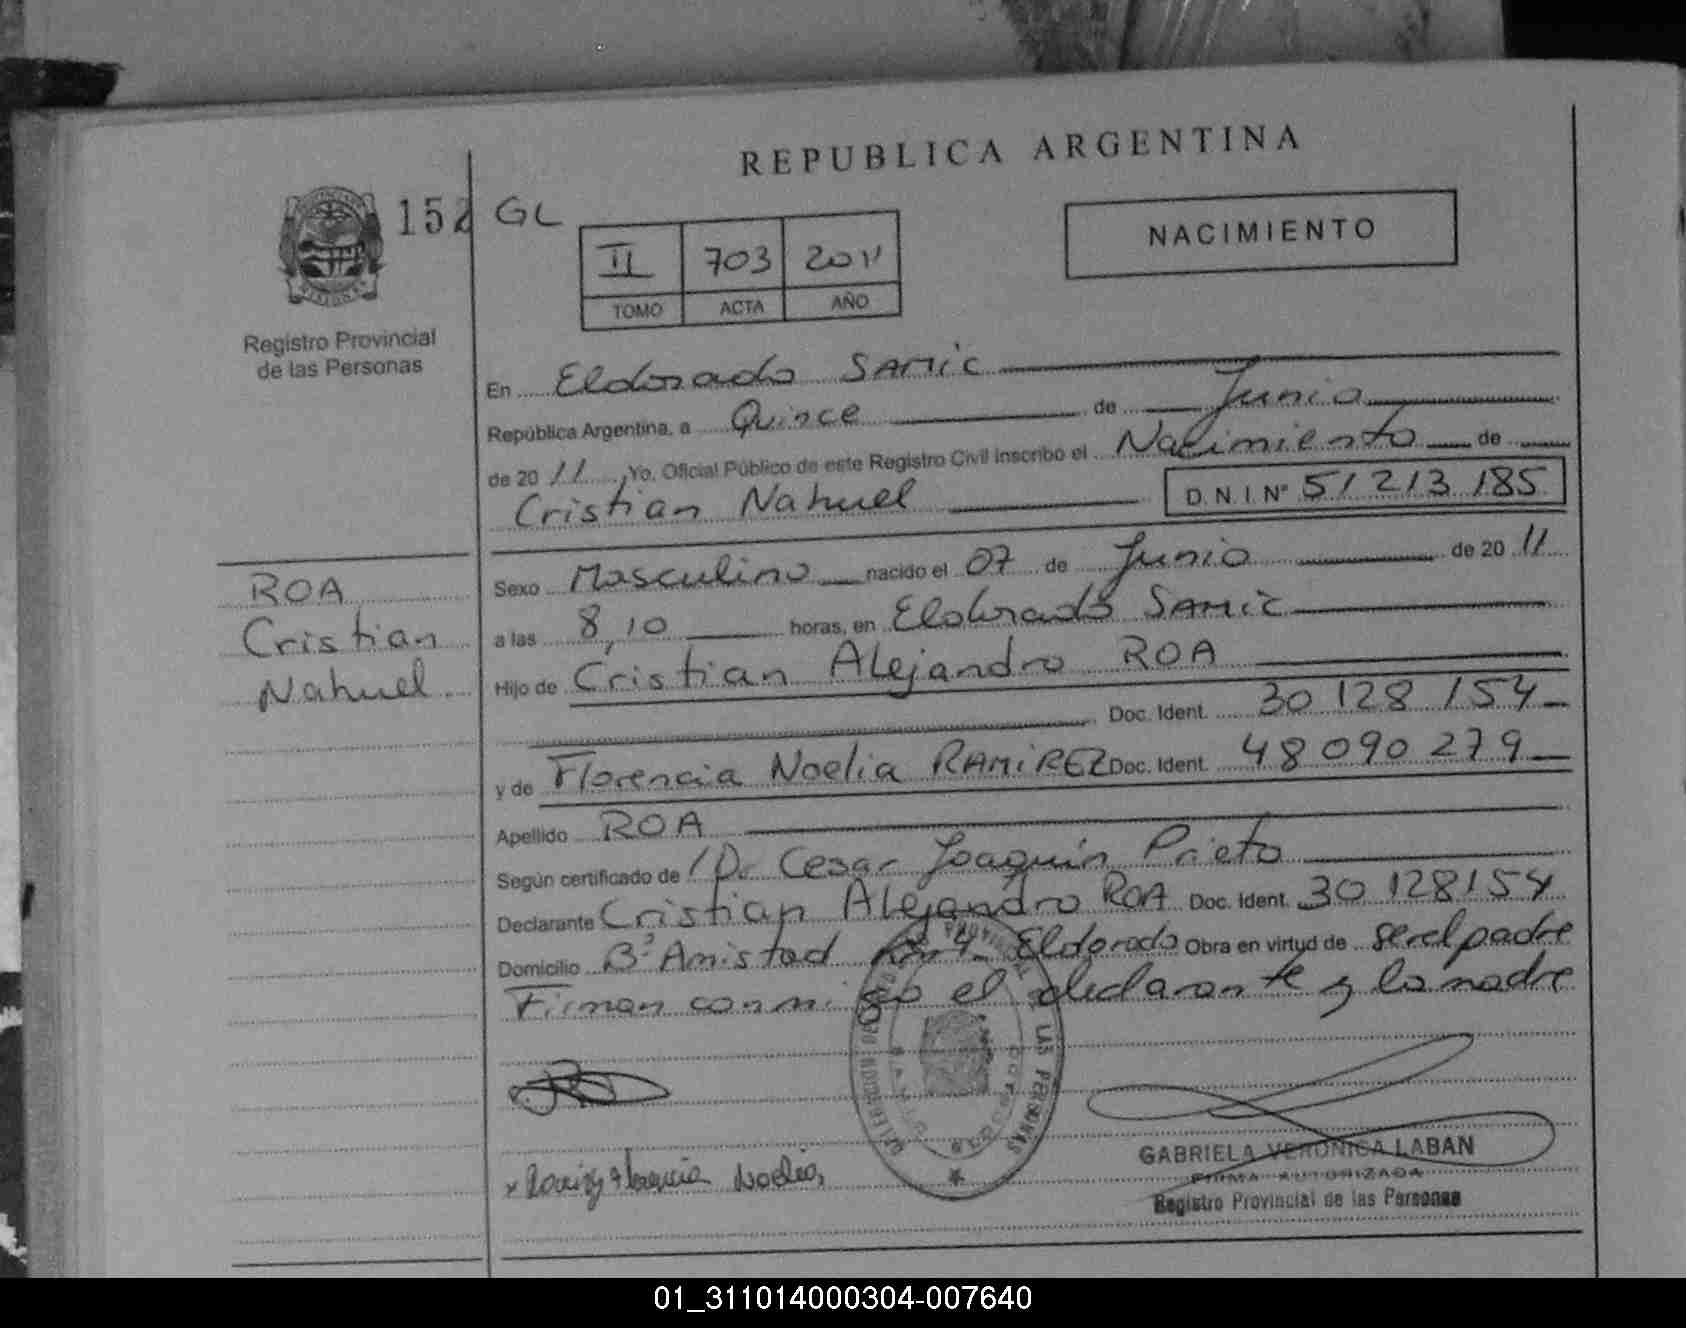 REPUBLICA ARGENTINA
152 GL
NACIMIENTO
II 703 2011
TOMO ACTA AÑO
Registro Provincial
de las Personas
En Eldorado SAMic
República Argentina, a Quince de Junio
de 20 11 Yo, Oficial Público de este Registro Civil inscribo el Nacimiento de
Cristian Nahuel D.N.I. Nº 51 213 185
ROA
Cristian
Nahuel
Sexo Masculino nacido el 07 de Junio de 20 11
a las 8,10 horas, en Eldorado SAMic
Hijo de Cristian Alejandro ROA
Doc. Ident. 30 128 154
y de Florencia Noelia RAMiREZ Doc. Ident. 48 090 279
Apellido ROA
Según certificado de Dr Cesar Joaquín Prieto
Declarante Cristian Alejandro ROA Doc. Ident. 30 128154
Domicilio Bº Amistad Km 4 Eldorado Obra en virtud de ser el padre
Firman conmigo el declarante y la madre
GABRIELA VERONICA LABAN
FIRMA AUTORIZADA
Registro Provincial de las Personas
01_311014000304-007640